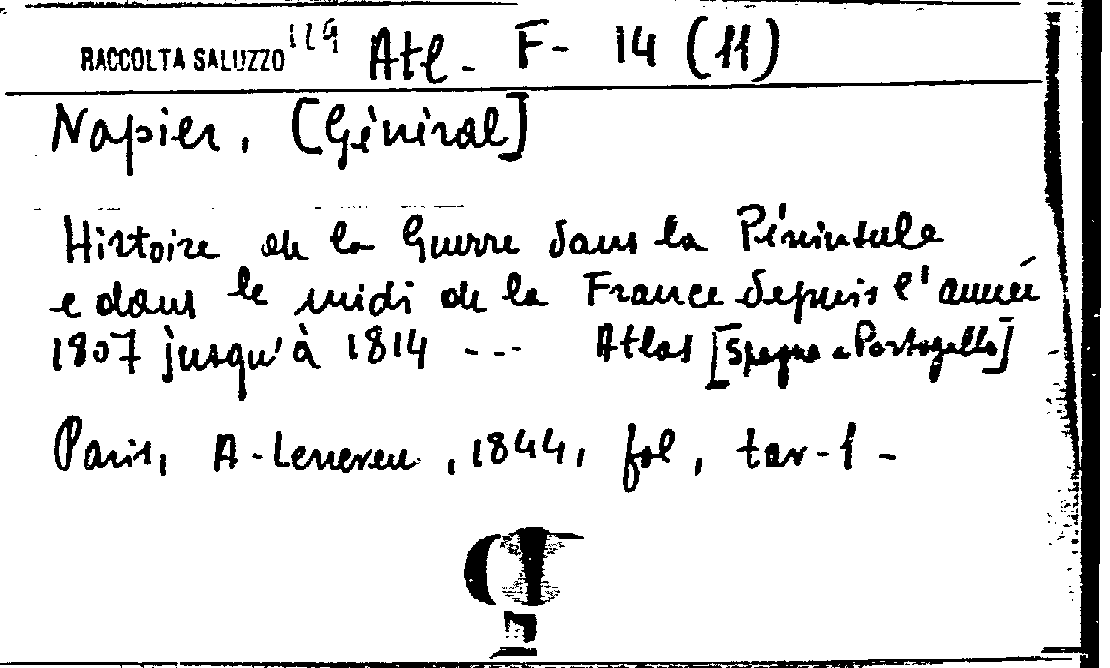 RACCOLTA SALUZZO 129 Atl - F - 14 (11)
Napier, [Général]
Histoire de la Guerre dans la Péninsule
e dans le midi de la France depuis l'année
1807 jusqu'à 1814 --- Atlas [Spagna e Portogallo]
Paris, A. Leneveu, 1844, fol, tav-1 -